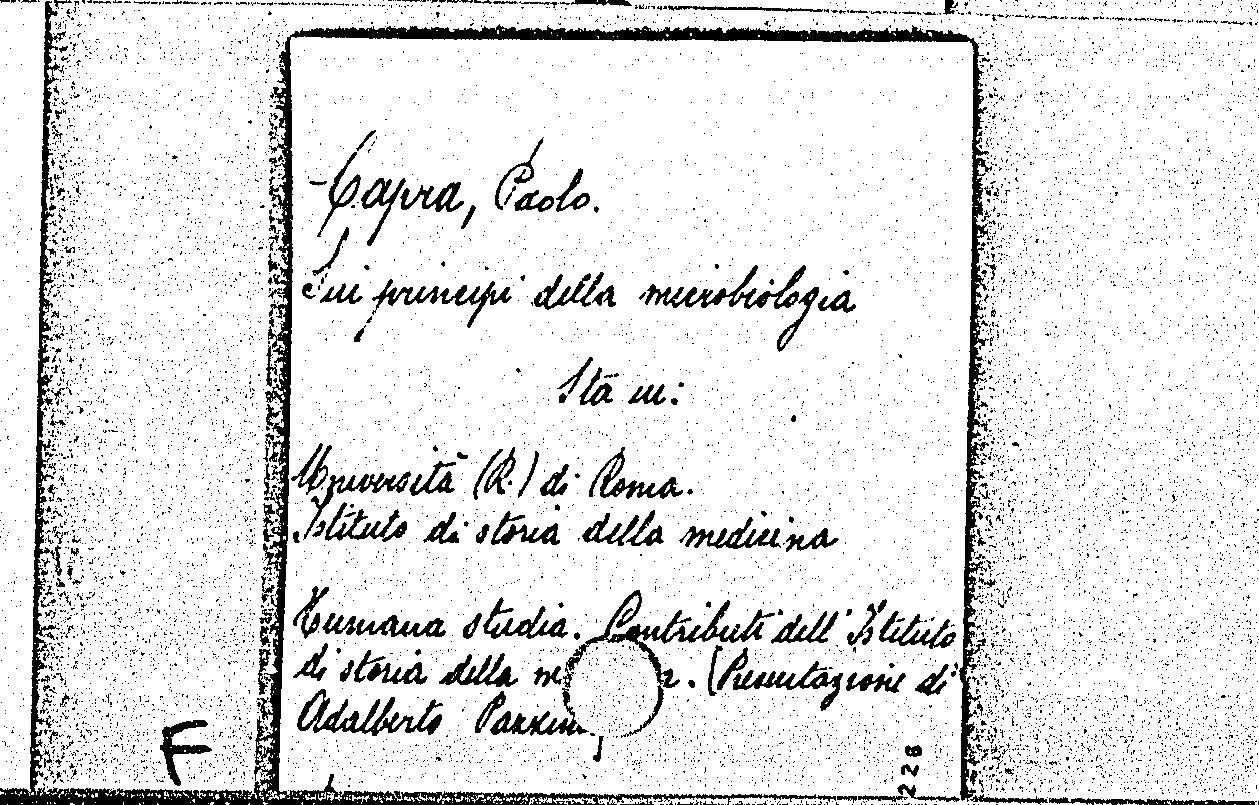 Capra, Paolo.
Sui principi della microbiologia
Sta in:
Università (R.) di Roma.
Istituto di storia della medicina
Humana studia. Contributi dell'Istituto
di storia della m a. (Presentazione di
Adalberto Pazzini,
F
228